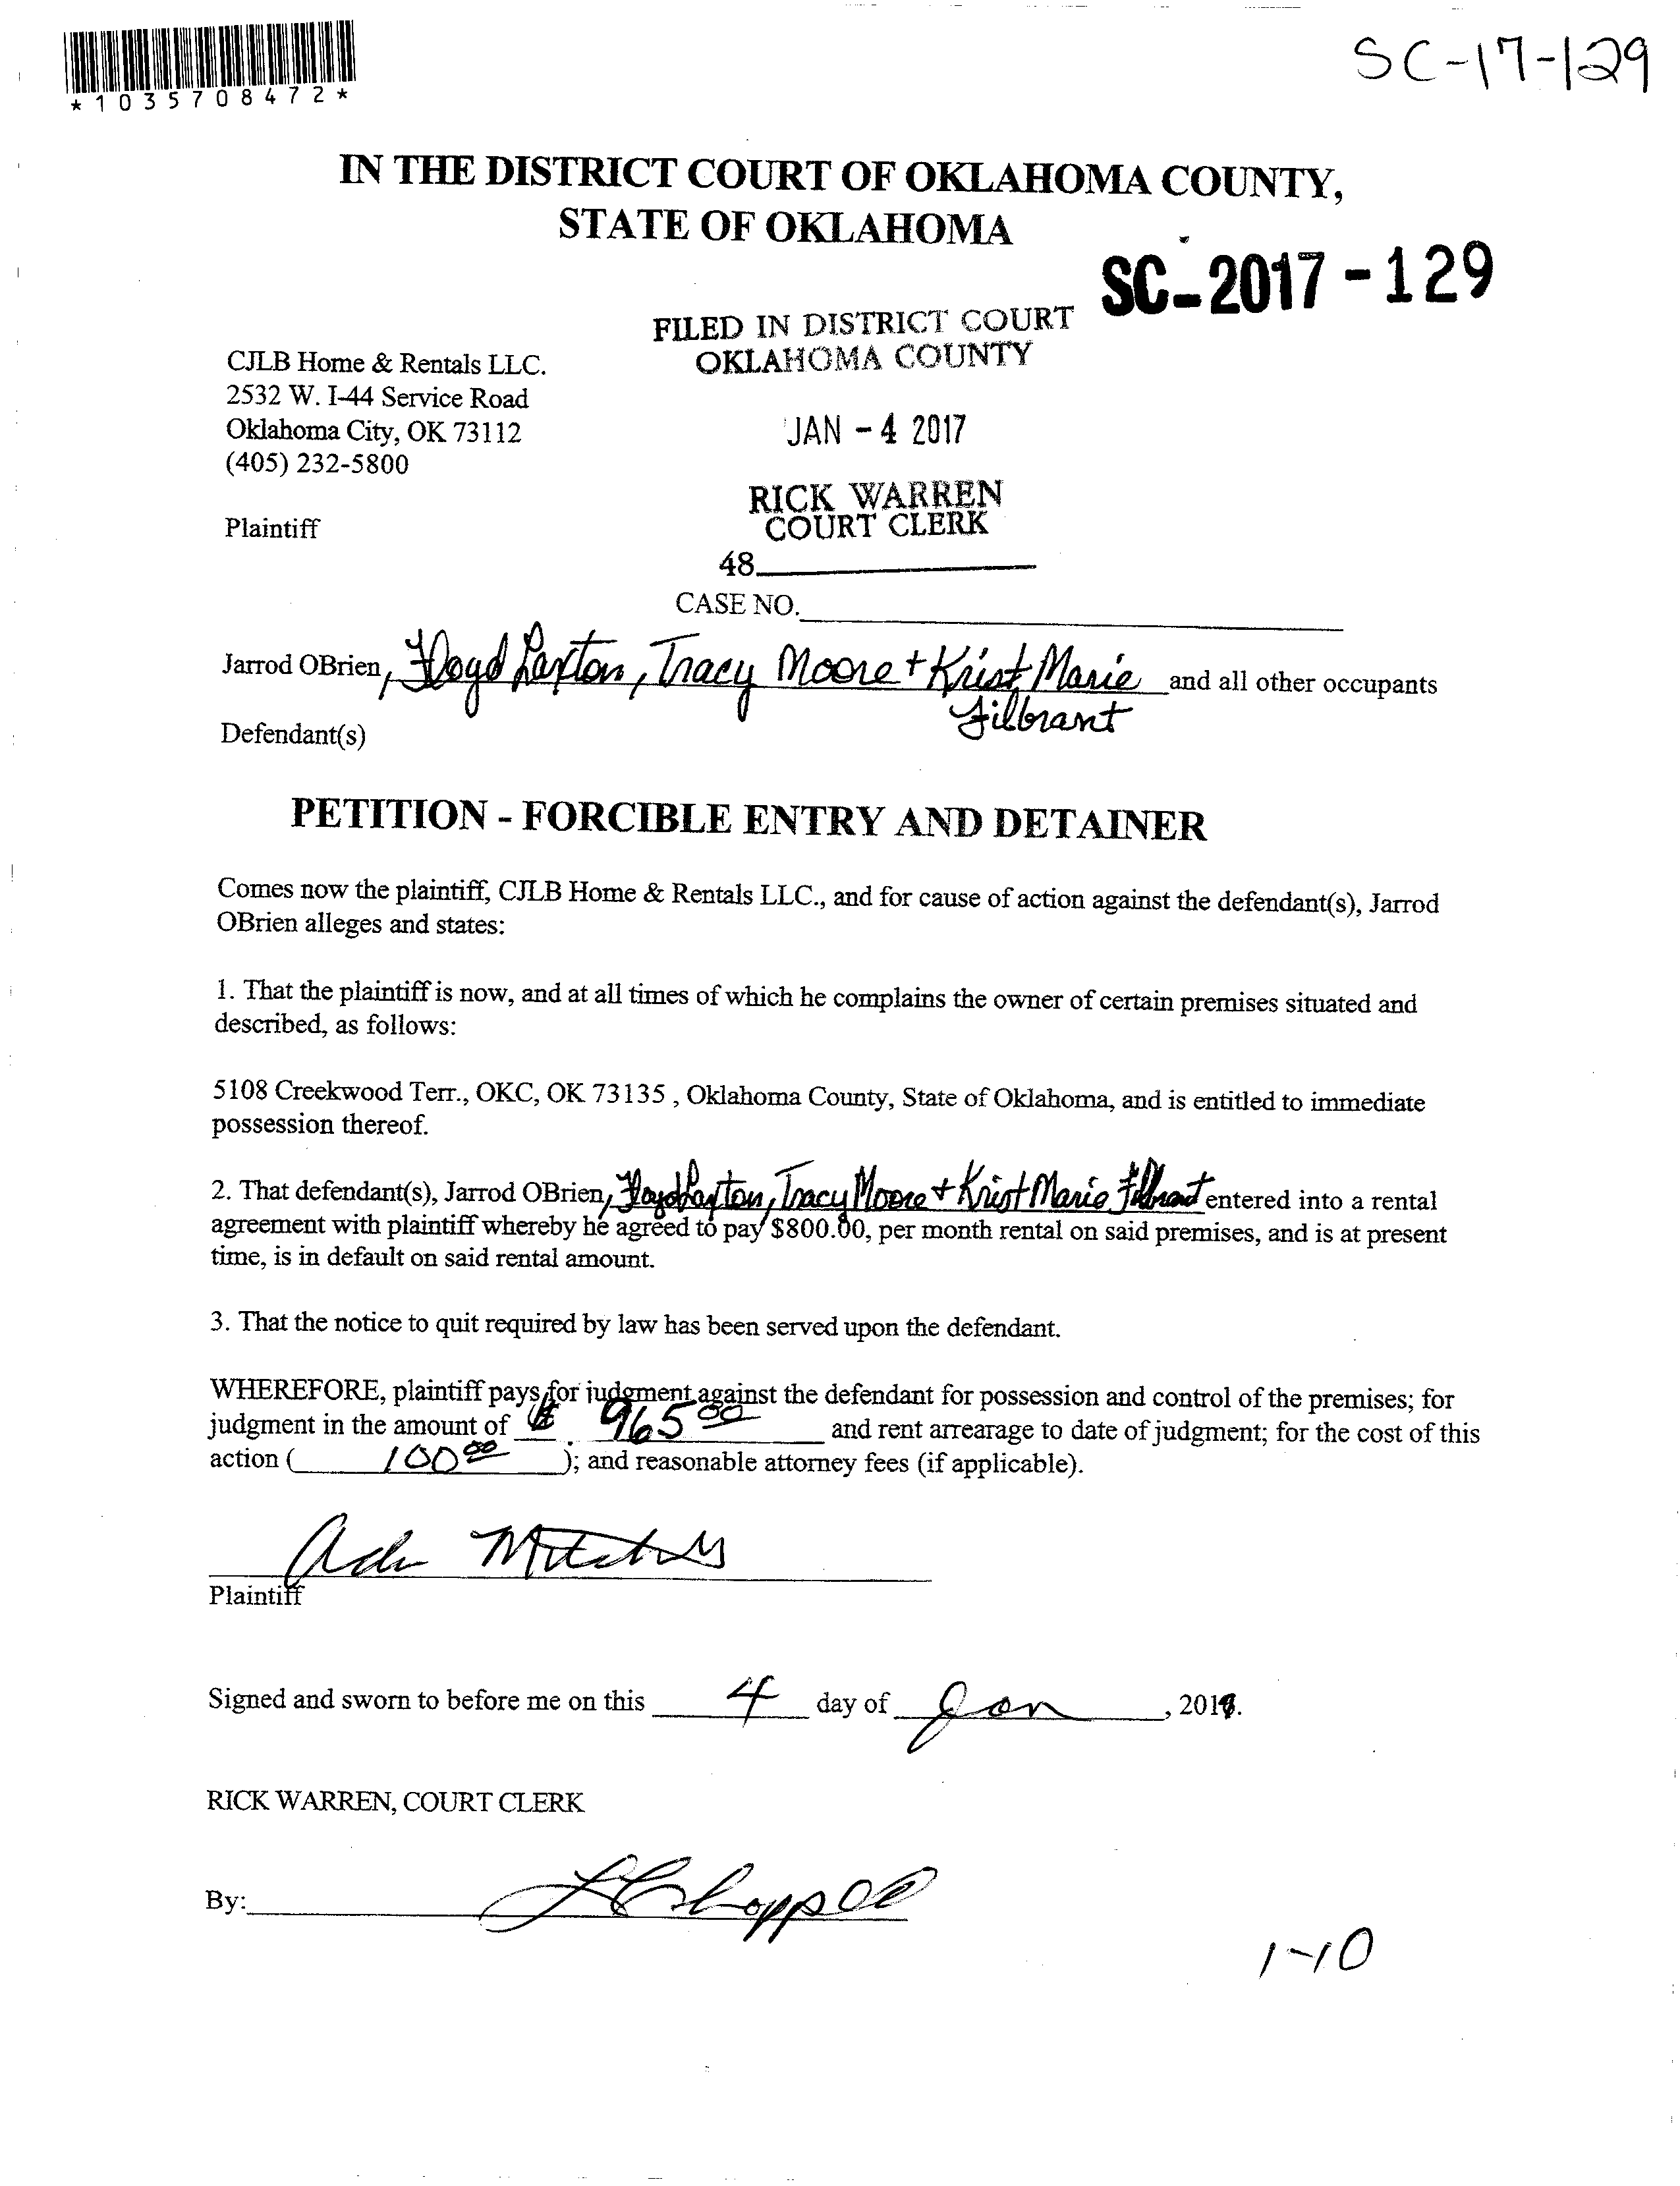 *1035708472*
SC-17-129
IN THE DISTRICT COURT OF OKLAHOMA COUNTY,
STATE OF OKLAHOMA
SC-2017-129
FILED IN DISTRICT COURT
OKLAHOMA COUNTY
CJLB Home & Rentals LLC.
2532 W. I-44 Service Road
Oklahoma City, OK 73112
(405) 232-5800
JAN -4 2017
RICK WARREN
COURT CLERK
Plaintiff
48
CASE NO.
Jarrod OBrien, Floyd Laxton, Tracy Moore + Krist Marie and all other occupants
Filbrant
Defendant(s)
PETITION - FORCIBLE ENTRY AND DETAINER
Comes now the plaintiff, CJLB Home & Rentals LLC., and for cause of action against the defendant(s), Jarrod
OBrien alleges and states:
1. That the plaintiff is now, and at all times of which he complains the owner of certain premises situated and
described, as follows:
5108 Creekwood Terr., OKC, OK 73135 , Oklahoma County, State of Oklahoma, and is entitled to immediate
possession thereof.
2. That defendant(s), Jarrod OBrien, Floyd Laxton, Tracy Moore + Krist Marie Filbrant entered into a rental
agreement with plaintiff whereby he agreed to pay $800.00, per month rental on said premises, and is at present
time, is in default on said rental amount.
3. That the notice to quit required by law has been served upon the defendant.
WHEREFORE, plaintiff pays for judgment against the defendant for possession and control of the premises; for
judgment in the amount of $ 965 00 and rent arrearage to date of judgment; for the cost of this
action ( 100 00 ); and reasonable attorney fees (if applicable).
Plaintiff
Signed and sworn to before me on this 4 day of Jan , 201
RICK WARREN, COURT CLERK
By:
1-10